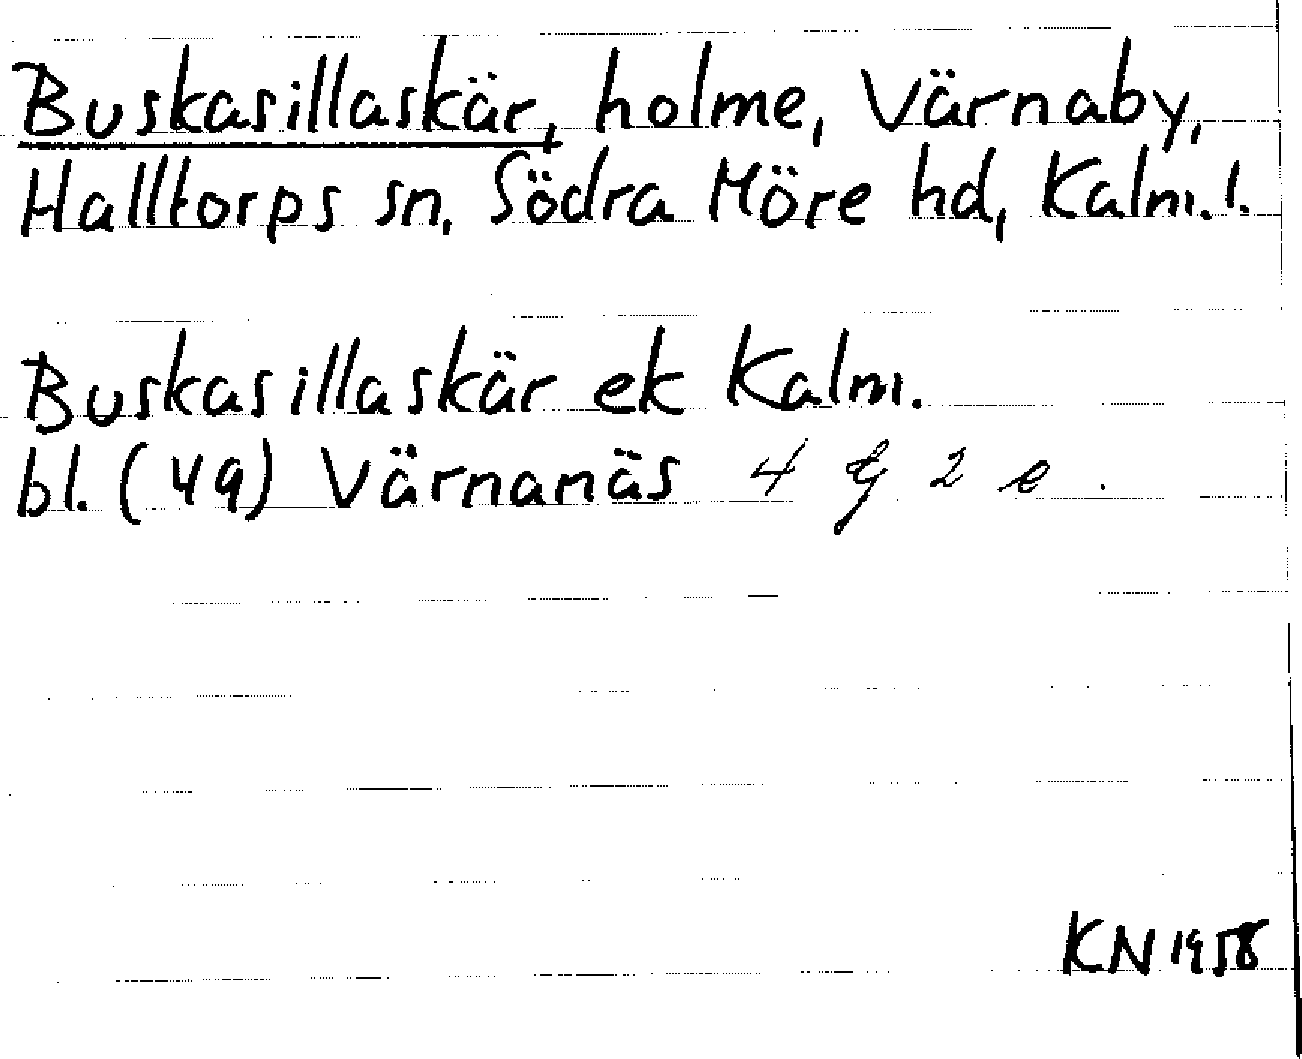 Buskasillaskär, holme, Värnaby,
Halltorps sn, Södra Möre hd, Kalm. l.
Buskasillaskär ek Kalm.
bl. (49) Värnanäs 4 G 2 e.
KN 1958